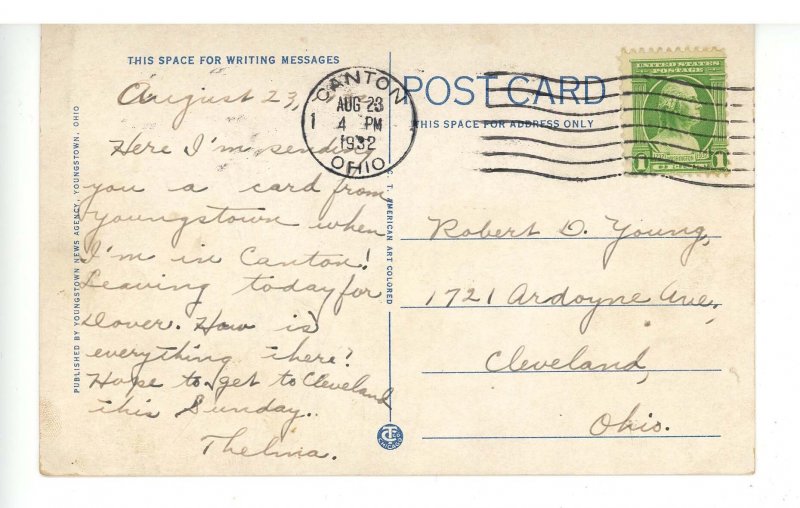 THIS SPACE FOR WRITING MESSAGES
August 23,
Here I'm sending
you a card from
Youngstown when
I'm in Canton!
Leaving today for
Dover. How is
everything there?
Hope to get to Cleveland
this Sunday.
Thelma.
PUBLISHED BY YOUNGSTOWN NEWS AGENCY, YOUNGSTOWN, OHIO
C. T. AMERICAN ART COLORED
CANTON
AUG 23
1 4 PM
1932
OHIO
POST CARD
THIS SPACE FOR ADDRESS ONLY
UNITED STATES
POSTAGE
1 1
Robert D. Young,
1721 Ardoyne Ave.,
Cleveland,
Ohio.
CT
CHICAGO